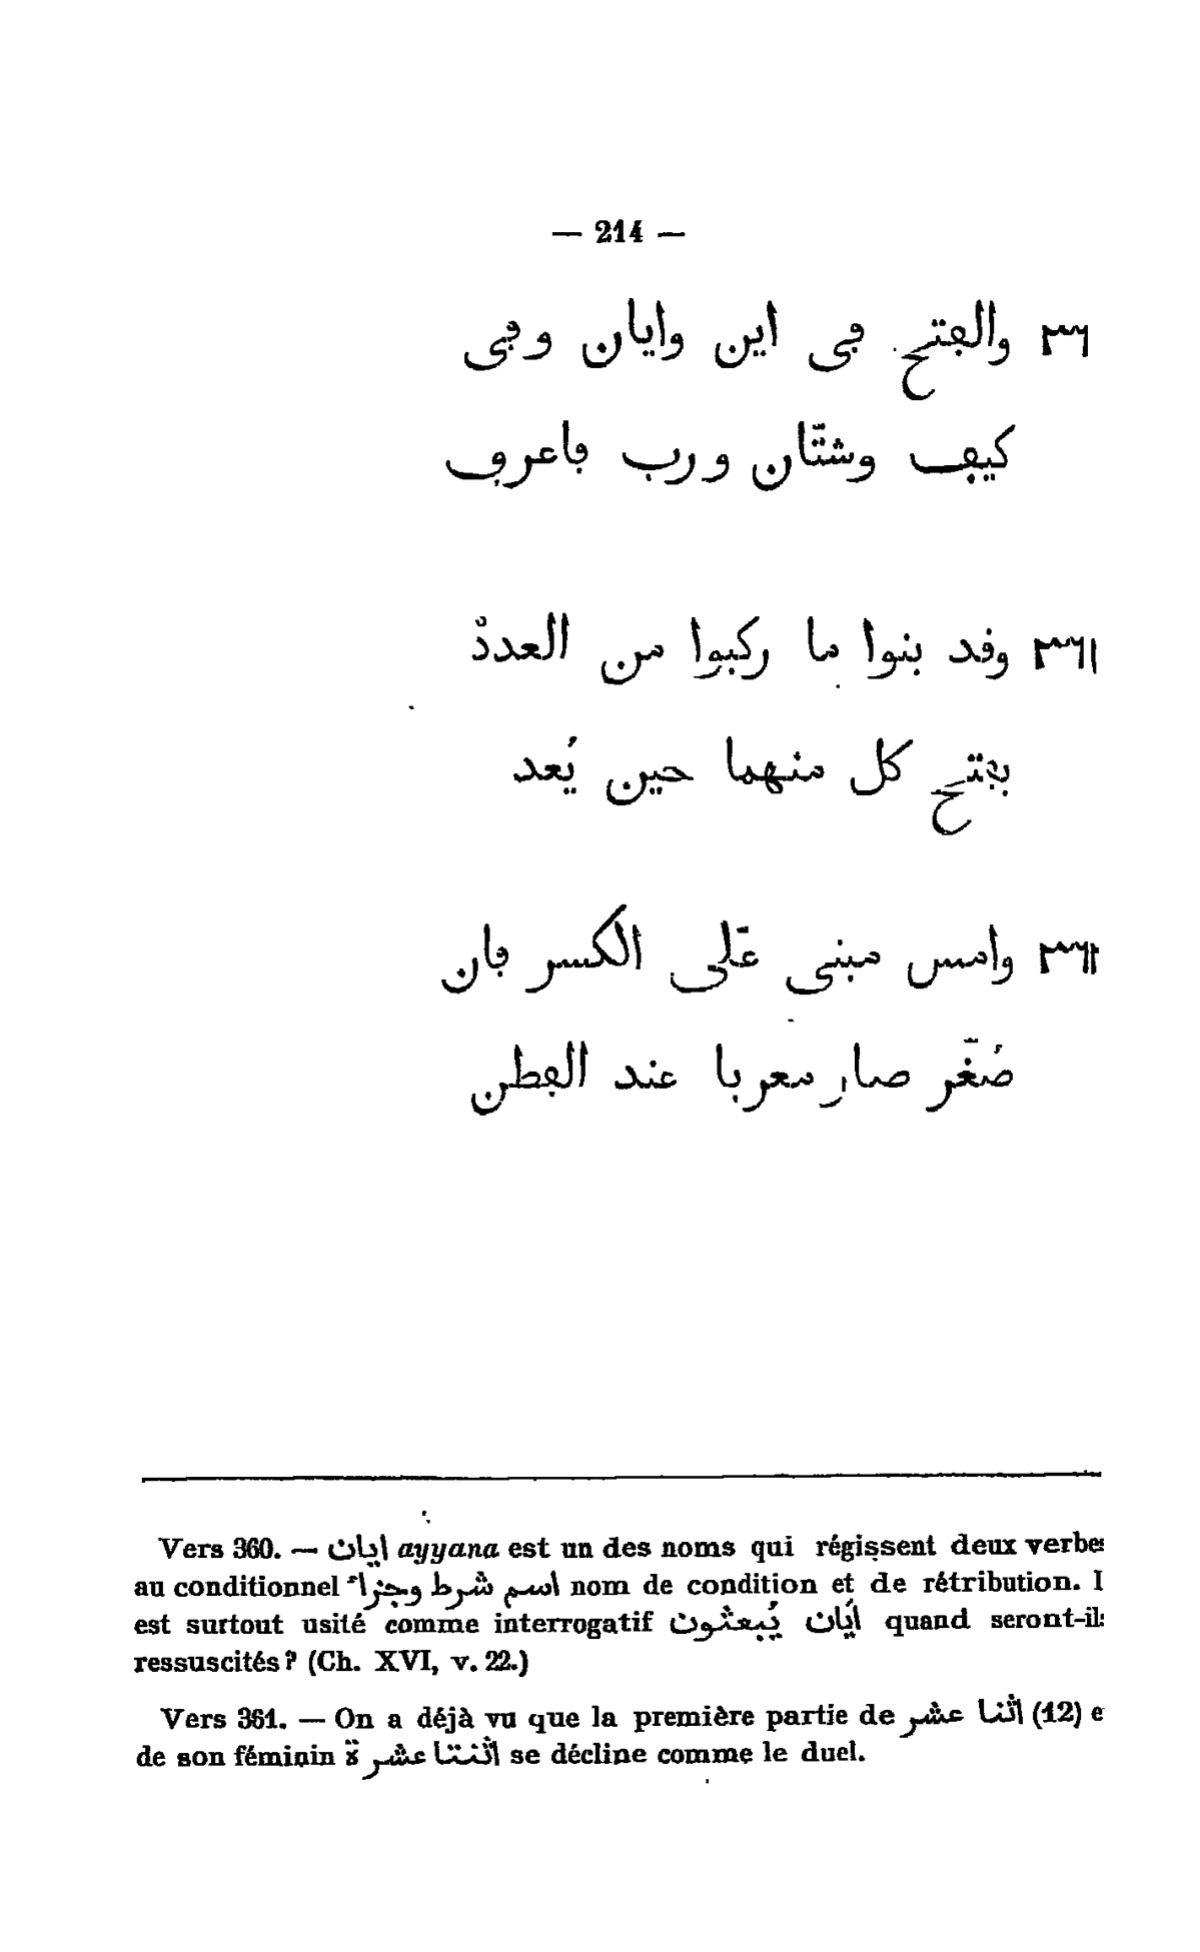 — 214 —
٣٦ والفتح في اين وايان وفي
كيف وشتّان ورب فاعرف
٣٦١ وقد بنوا ما ركبوا من العددْ
بفتح كل منهما حين يُعد
٣٦٢ وامس مبنى على الكسر فان
صُغّر صار معربا عند الفطن
Vers 360. — ايان ayyana est un des noms qui régissent deux verbes
au conditionnel اسم شرط وجزاء nom de condition et de rétribution. I
est surtout usité comme interrogatif اَيان يُبعثون quand seront-ils
ressuscités ? (Ch. XVI, v. 22.)
Vers 361. — On a déjà vu que la première partie de اثنا عشر (12) e
de son féminin اثنتا عشرة se décline comme le duel.